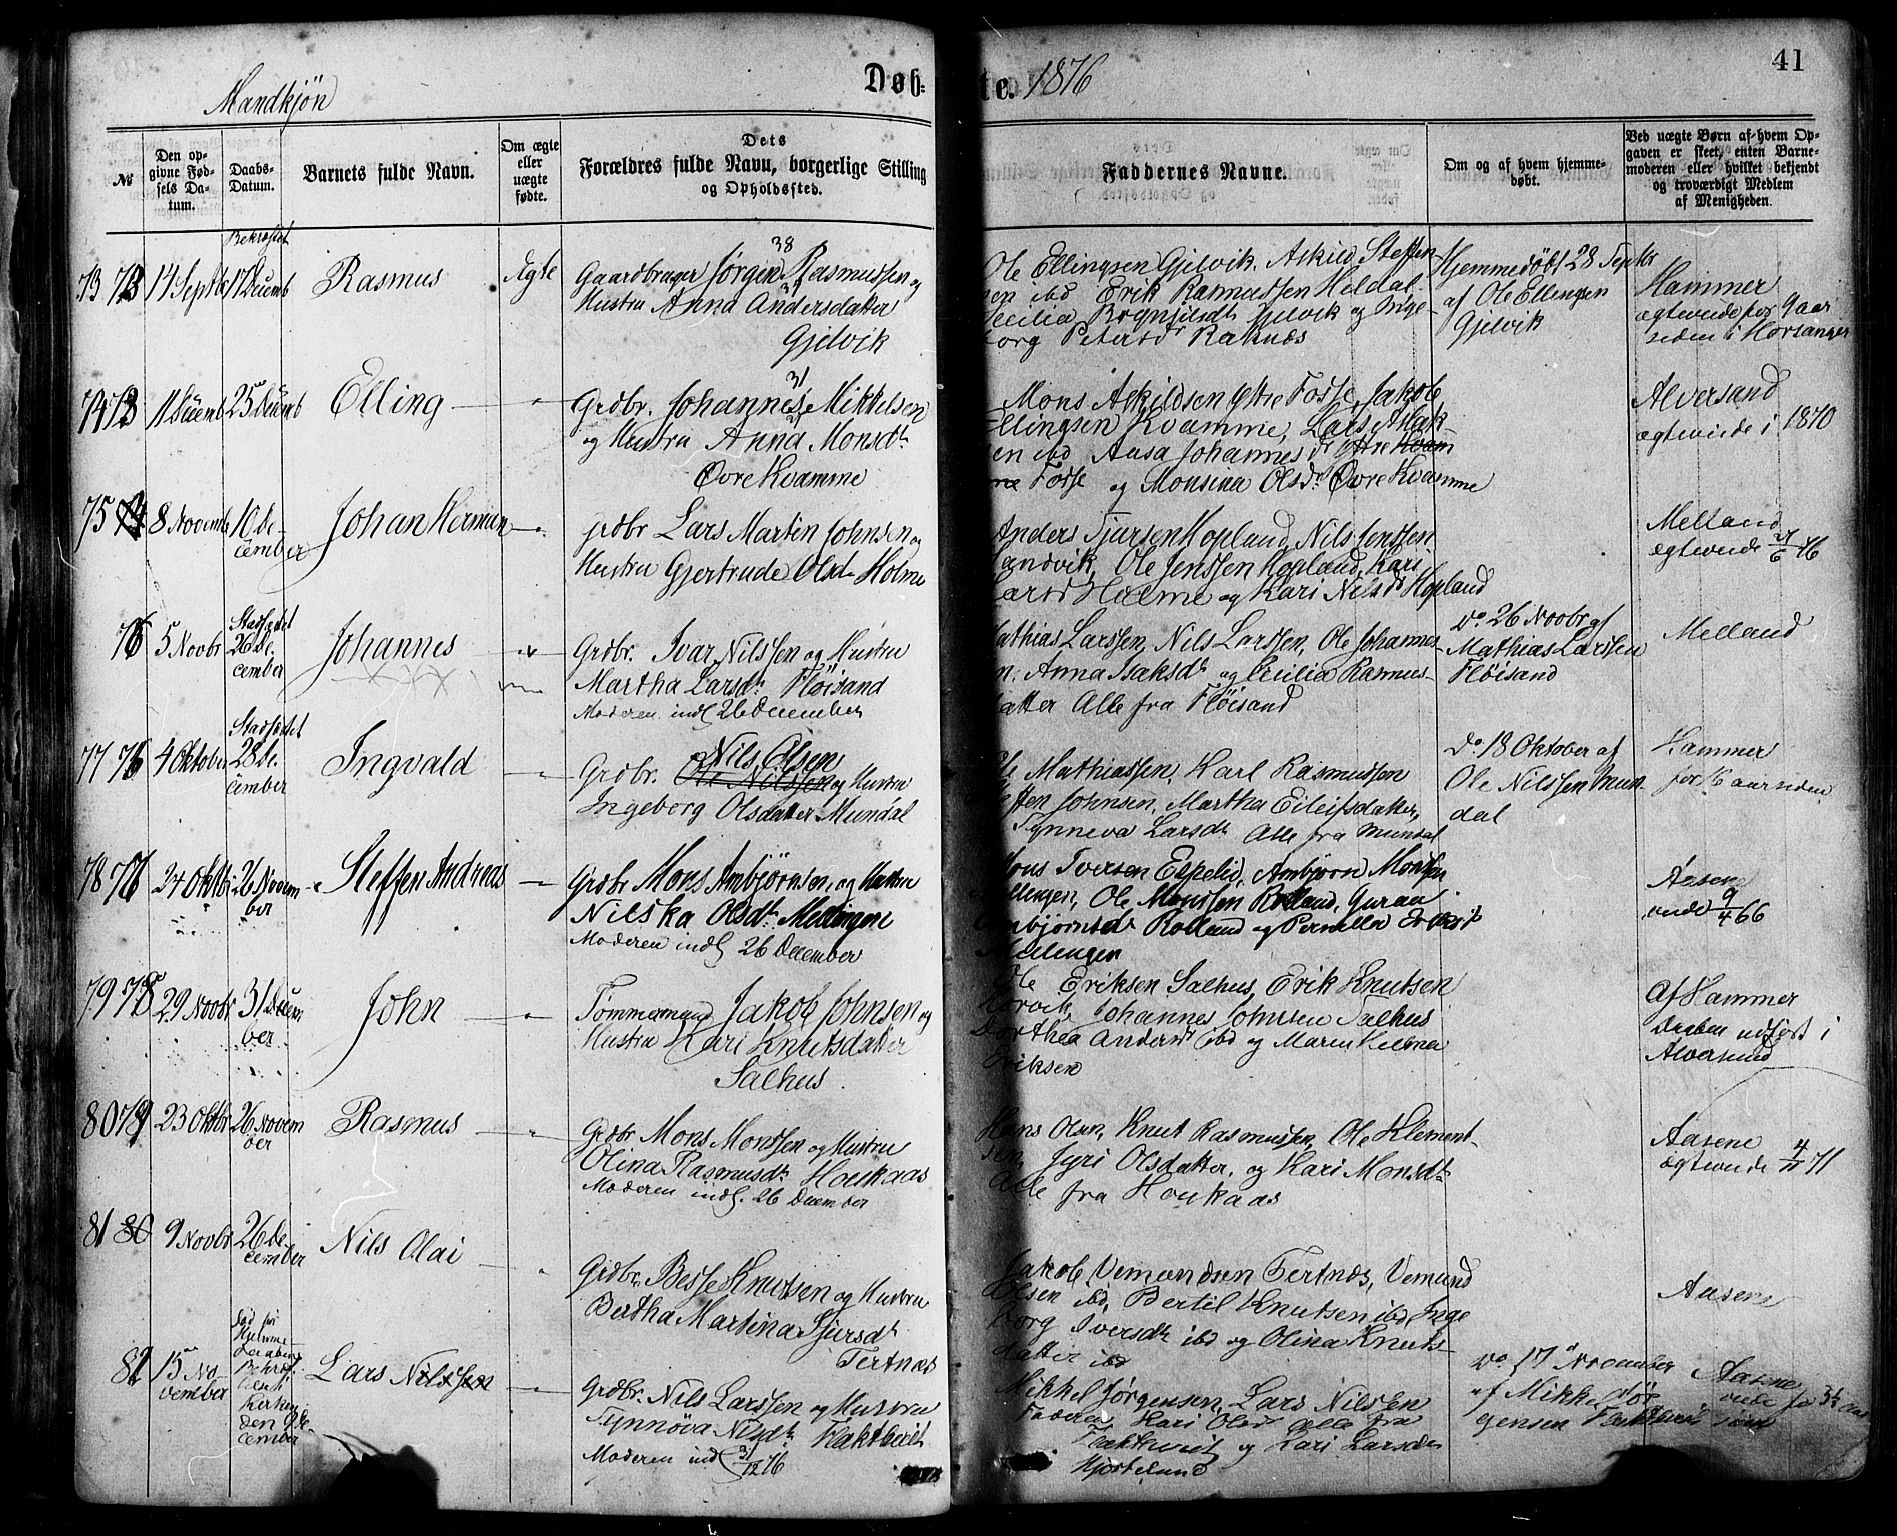 41
Mandkjön
Døb- te. 1876
№
Den opgivne Fødsels Datum.
Daabs-Datum.
Barnets fulde Navn.
Om ægte eller uægte fødte.
Dets Forældres fulde Navn, borgerlige Stilling og Opholdssted.
Faddernes Navne.
Om og af hvem hjemmedøbt.
Ved uægte Børn af hvem Opgaven er skeet, enten Barnemoderen eller hvilket bekjendt og troværdigt Medlem af Menigheden.
73 14 Septbr
Bekræftet
17 Decemb
Rasmus
Ægte
38
Gaardbruger Jørgen Rasmussen og
Hustru Anna Andersdatter
Gjelvik
Ole Ellingsen Gjelvik, Askild Steffen-
sen ibd Erik Rasmussen Heldal
Cecilia Gjelvik og Inge-
borg Petersd Raknæs
Hjemmedöbt 28 Septbr
af Ole Ellingsen
Gjelvik
Hammer
ægteviede for 9 aar
siden i Horsanger
74 73 11 Decemb 25 Decemb
Elling
31
Grdbr. Johannes Mikkelsen
og Hustru Anna Monsdtr
Øvre Kvamme
Mons Askildsen Ytre Fosse, Jakob
Ellingsen Kvamme, Lars Aslak-
sen ibd Aasa Johannesdr Ytre Kvam
me Fosse og Monsina Olsdr Øvre Kvamme
Alversund
ægteviede i 1870
75 74 8 Novembr
10 De-
cember
Johan Herman
Grdbr Lars Martin Johnsen og
Hustru Gjertrude Olsdr Holme
Anders Sjursen Hopland, Nils Jenssen
Sandvik, Ole Jenssen Hopland, Kari
Larsd Holme og Kari Nilsd Hopland
Melland
ægteviede 76
76 5 Novbr
Stadfæstet
26 De-
cember
Johannes
Grdbr. Ivar Nilssen og Hustru
Martha Larsdtr Flöisand
Moderen indl 26 December
Mathias Larssen, Nils Larssen, Ole Johannes-
sen. Anna Isaksdtr og Cecilia Rasmus-
datter Alle fra Flöisand
do. 26 Novbr af
Mathias Larssen
Flöisand
Melland
77 76 4 Oktober
Stadfæstet
28 De-
cember
Ingvald
Nils Olsen
Grdbr. Ole Nilssen og Hustru
Ingeborg Olsdatter Mundal
Ole Mathiassen, Karl Rasmussen
Steffen Johnsen, Martha Eileifsdatter,
Synneva Larsdtr Alle fra Mundal
do. 18 Oktober af
Ole Nilssen Mun
dal
Hammer
for 16 aar siden
78 24 Oktbr
26 Novem-
ber
Steffen Andreas
Grdbr Mons Ambjörnsen og Hustru
Nilska Olsdtr Mellingen
Moderen indl 26 December
Mons Iversen Espelid, Ambjörn Monssen
Mellingen, Ole Monssen Rolland, Guraa
Ambjörnsdtr Rolland og Pernilla Eriksd
Mellingen
Aasene
viede 9/4 66
79 78 29 Novbr
31 Decem-
ber
John
Tømmermand Jakob Johnsen og
Hustru Kari Knutsdatter
Salhus
Ole Eriksen Salhus, Erik Knutsen
Johannes Johnsen Salhus
Dorthea Andersdtr ibd og Maren
Eriksen
Af Hammer
Daaben udført i
Alversund
80 79 23 Oktbr
26 Novem
ber
Rasmus
Grdbr Mons Monssen og Hustru
Olina Rasmusdtr Houkaas
Moderen indl. 26 December
Hans Olsen, Knut Rasmussen, Ole Klement-
sen, Jyri Olsdatter, og Kari Monsdtr
Alle fra Houkaas
Aasene
ægteviede 71
81 80 9 Novbr
26 De-
cember
Nils Olai
Grdbr. Besse Knutsen og Hustru
Bertha Martina Sjursdtr
Tertnæs
Jakob Vemundsen Tertnæs, Vemund
Olsen ibd, Bertil Knutsen ibd, Inge
borg Iversdtr ibd og Olina Knuts-
datter ibd
Aasene
82 15 No-
vember
Hjemme-
daaben
Bekræf.
Kirken
den 9 De
cember
Lars Nilssen
Grdbr. Nils Larssen og Hustru
Synnöva Nilsdtr Flaktveit
Moderen indl 31/12 76
Mikkel Jørgensen, Lars Nilssen
Faderen, Kari Olsd Alle fra
Flaktveit og Kari Larsdtr
Hjortland
do. 17 November
af Mikkel Jör
gensen Flaktveit
Aasene